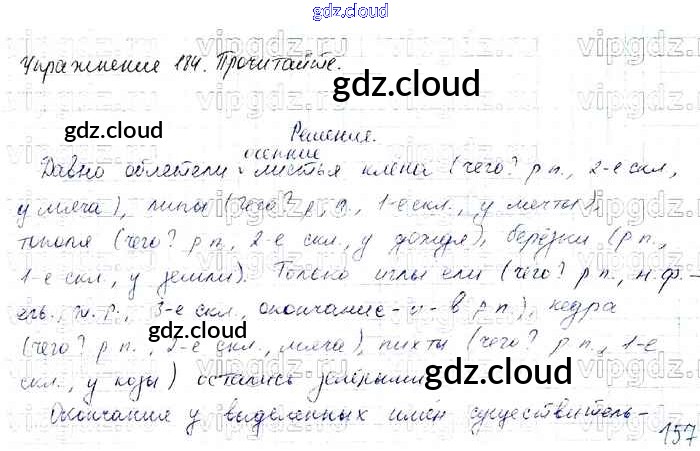 gdz.cloud
Упражнение 184. Прочитайте.
Решение.
осенние
Давно облетели листья клёна (чего? р п., 2-е скл.,
у мяча), липы (чего? р. п., 1-е скл., у мечты),
тополя (чего? р п., 2-е скл., у дождя), берёзки (р п.,
1-е скл., у земли). Только иглы ели (чего? р п., н.ф. -
ель, ж. р., 3-е скл., окончание -и- в р п.), кедра
(чего? р п., 2-е скл., мяча), пихты (чего? р п., 1-е
скл., у козы) остались зелёными.
Окончания у выделенных имён существитель-
157
gdz.cloud
gdz.cloud
gdz.cloud
gdz.cloud
gdz.cloud